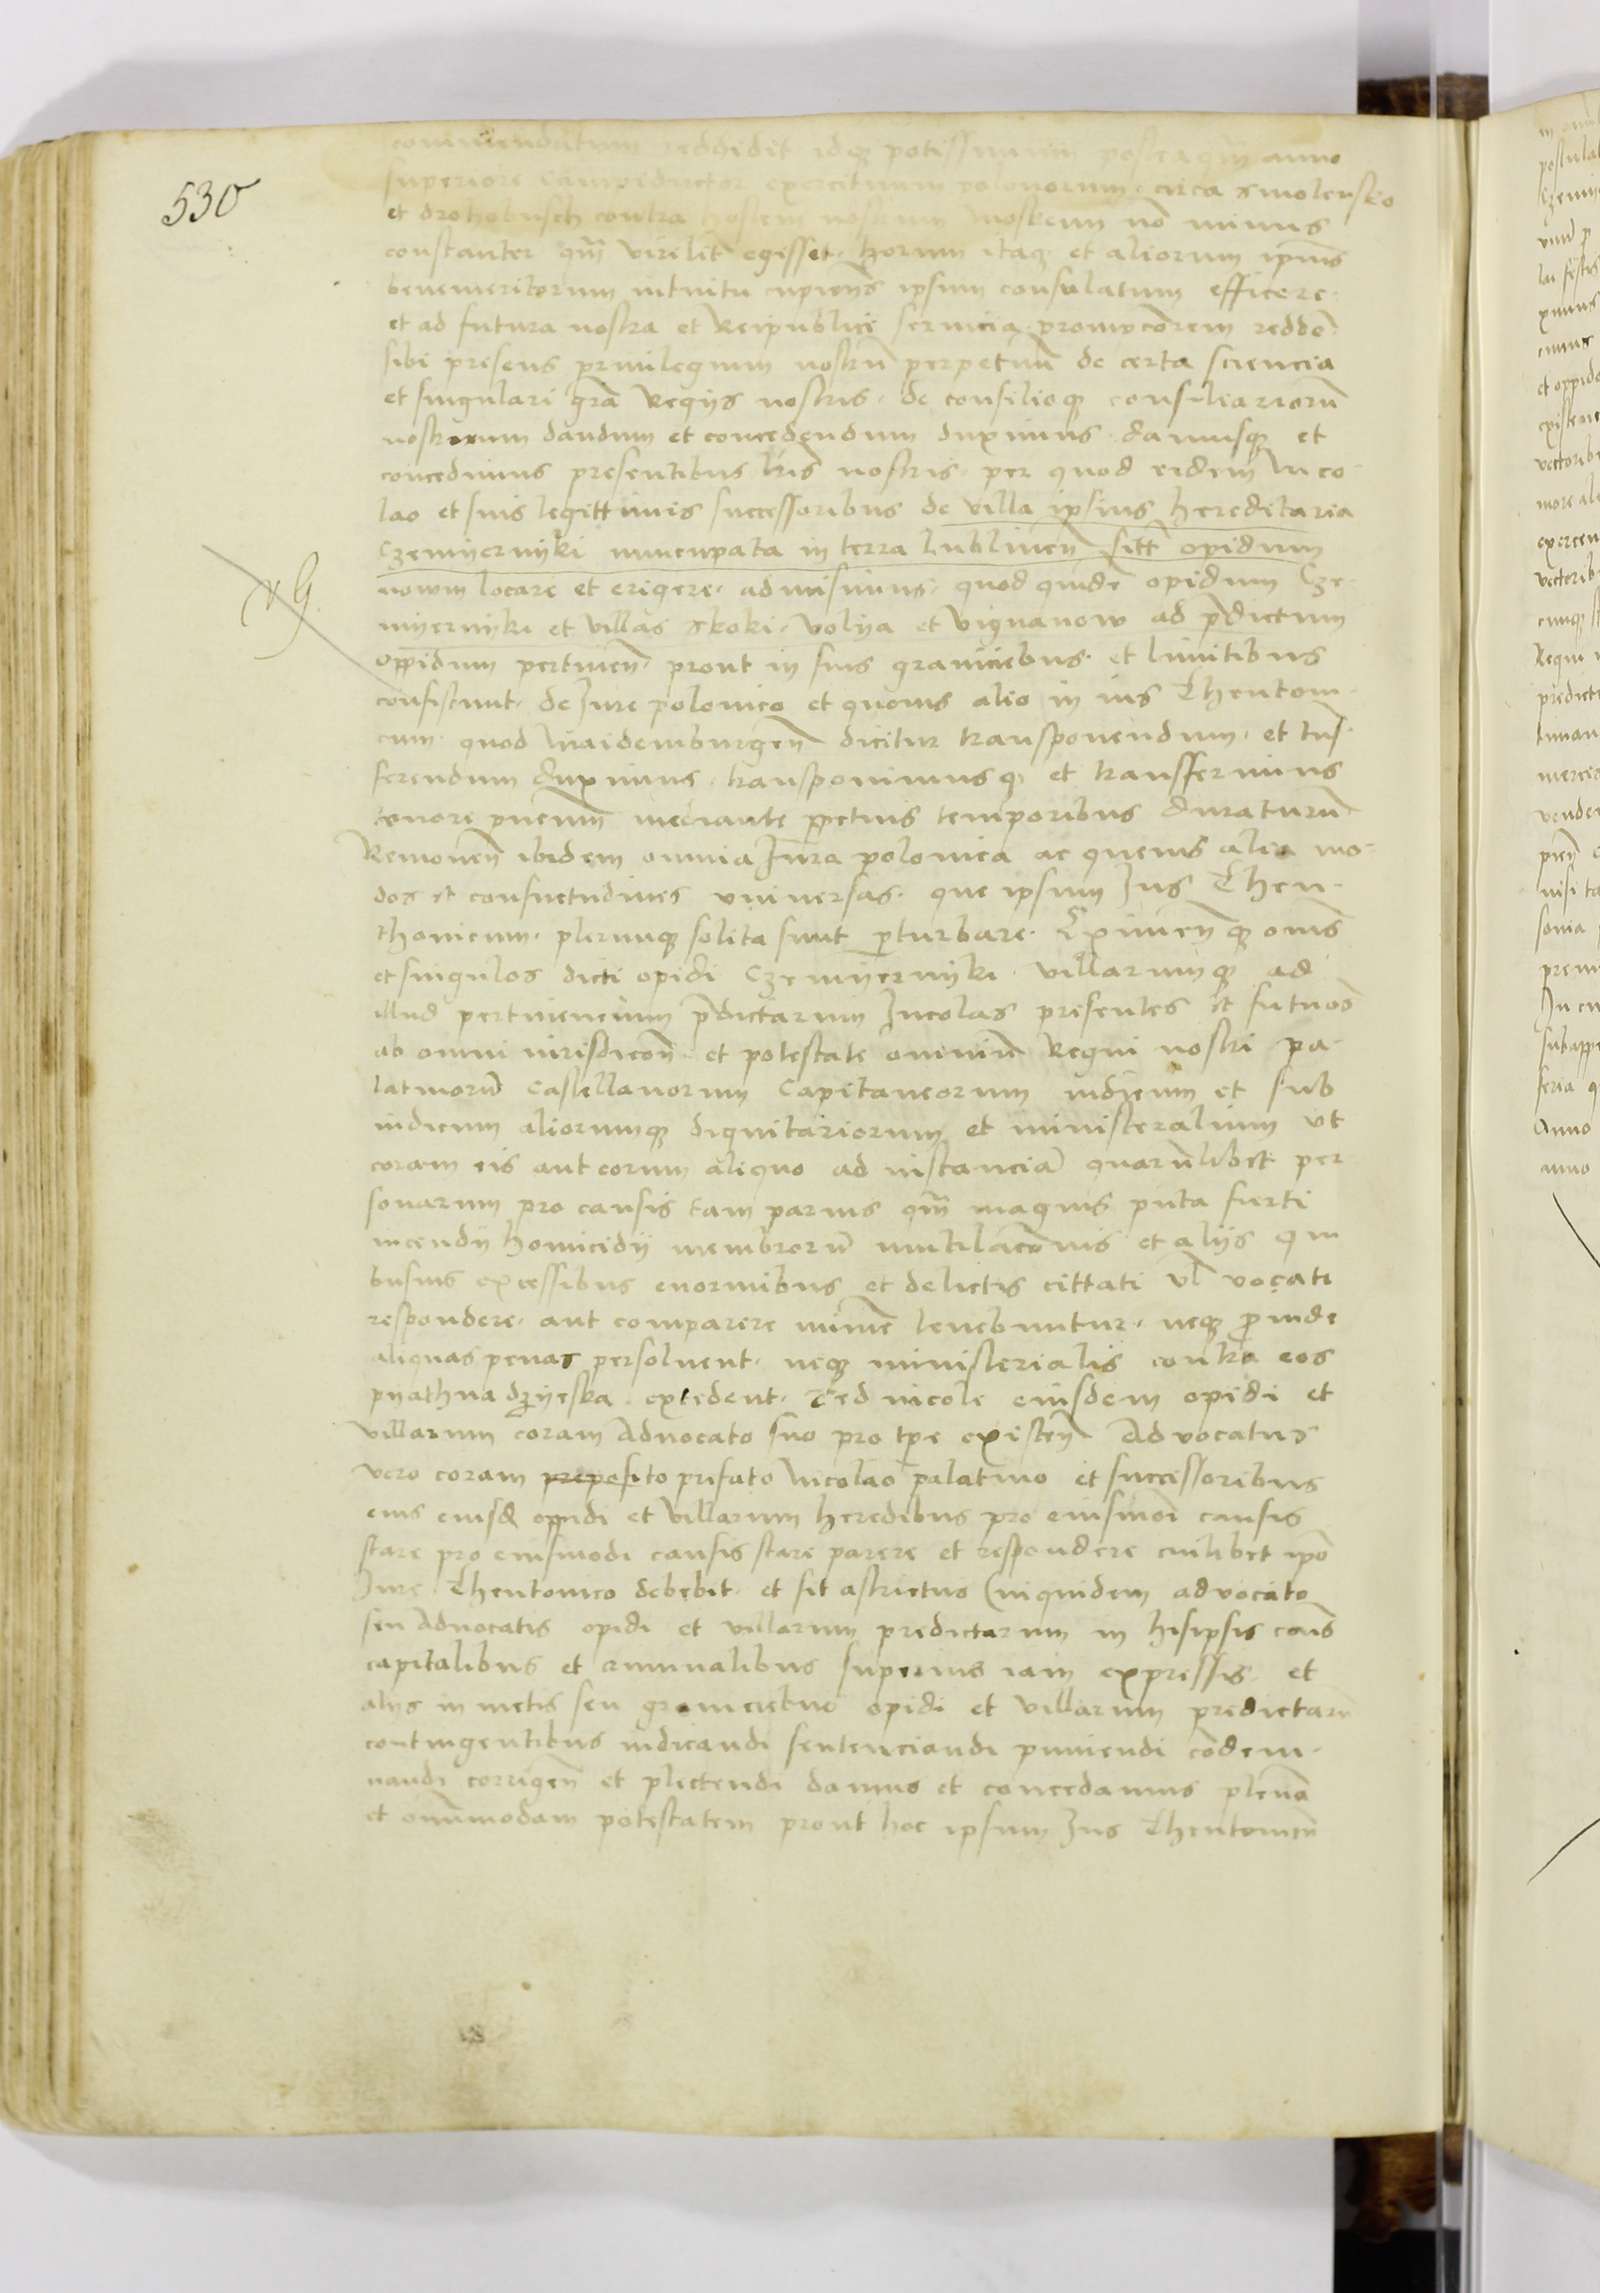 530
commendatum reddidit idq potissimum posteaqm anno
superiore Campiductor exercituum polonorum circa smolensko
et drohobusch contra hostem nostrum Moskum no minus
constanter qm virilit egisset. Horum itaq et aliorum ipius
benemeritorum intuitu cupientes ipsum consulatum efficere
et ad futura nostra et Reipublice servicia prompciorem redde
sibi presens privilegium nostru perpetuu de certa sciencia
et singulari gra Regiis nostris de consilioq consiliarioru
nostrorum dandum et concedendum duximus damusq et
concedimus presentibus lris nostris per quod eidem Nico
lao et suis legittimis successoribus de villa ipsius hereditaria
Czemyernyki nuncupata in terra Lublinen sitt opidum
novum locare et erigere admisimus quod quide opidum Cze
myernyki et villas skoki volya et vignanow ad pdictum
oppidum pertinen prout in suis graniciebus et limitibus
consistunt de Jure polonico et quovis alio in ius Theutoni
cum quod Maidemburgen dicitur transponendum et tns
ferendum duximus transponimusq et transferimus
tenore pntium mediante ppetuis temporibus duraturu
Removen ibidem omnia Jura polonica ac quevis alia mo
dos et consuetudines universas que ipsum Jus Theu
thonicum plerumq solita sunt pturbare Eximen q omes
et singulos dicti opidi Czemyernyki villarumq ad
illud pertinencium pdictarum Incolas presentes et futuros
ab omni iurisdicon et potestate omniu Regni nostri pa
latinoru Castellanorum Capitaneorum iudicum et sub
iudicum aliorumq dignitariorum et ministeralium ut
coram eis aut eorum aliquo ad instancia quarulibet per
sonarum pro causis tam parvis qm magnis puta furti
incendii homicidii membroru mutilaconis et aliis qui
busvis excessibus enormibus et delictis cittati vl vocati
respondere aut comparere minime tenebuntur neq proinde
aliquas penas persolvent neq ministerialis contra eos
pyathna dzyeska extedent Sed incole eiusdem opidi et
villarum coram Advocato suo pro tpe existen Advocatus
vero coram preposito prefato Nicolao palatino et successoribus
eius eiusd oppidi et villarum heredibus pro eiusmoi causis
stare pro eiusmodi causis stare parere et respondere cuilibet ipo
Jure Theutonico debebit et sit astrictus Cuiquidem advocato
seu Advocatis opidi et villarum predictarum in hisipsis caus
capitalibus et criminalibus superius iam expressis et
aliis in metis seu graniciebus opidi et villarum predictaru
contingentibus iudicandi sentenciandi puniendi codem
nandi corrigen et plectendi damus et concedamus plena
et omnimodam potestatem prout hoc ipsum Jus Theutonicu